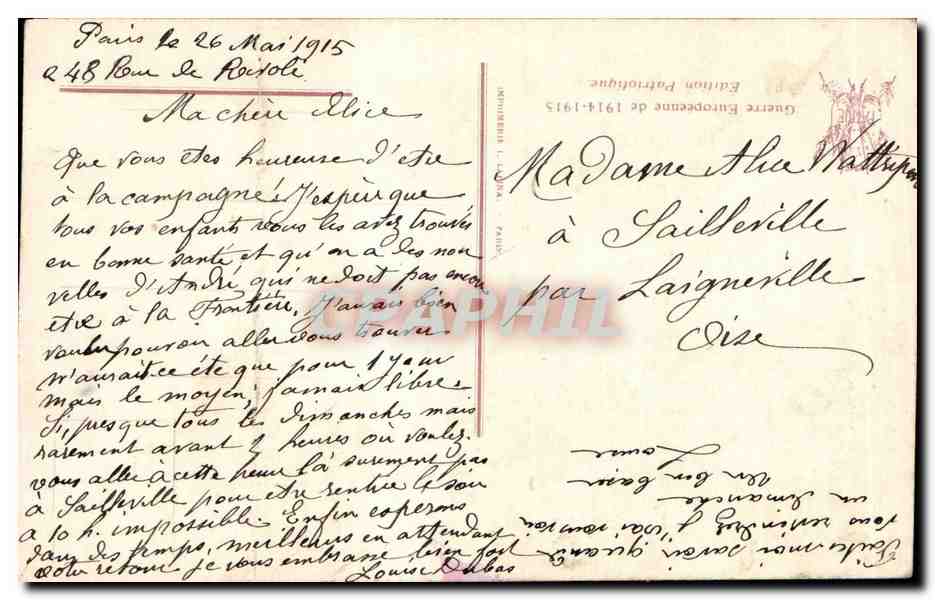 Paris le 26 Mai 1915
248 Rue de Rivoli
Ma chère Alice
Que vous êtes heureuse d'être
à la campagne! J'espère que
tous vos enfants vous les avez trouvés
en bonne santé et qu'on a des nou
velles d'André, qui ne doit pas encore
être à la Frontière, J'aurais bien
voulu pouvoir aller vous trouver
n'aurait-ce été que pour 1 jour
mais le moyen; jamais libre.
Si, presque tous les dimanches mais
rarement avant 2 heures où voulez-
vous aller à cette heure là surement pas
à Sailleville pour être rentrée le soir
à 10 h. impossible. Enfin espérons
dans des temps, meilleurs en attendant
votre retour je vous embrasse bien fort
Louise Dubas
IMPRIMERIE PARIS
Guerre Européenne de 1914-1915
Edition Patriotique
Madame Alice
à Sailleville
par Laigneville
Oise
Faites-moi savoir quand
vous reviendrez j'irai vous voir
un dimanche
Un bon baiser
Louise
CPAPHIL